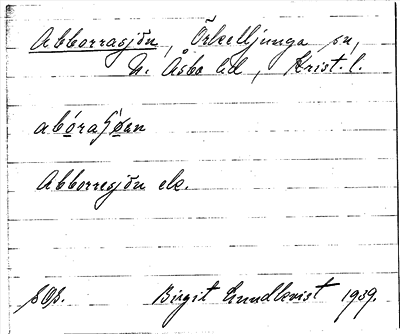 Abborrasjön, Örkelljunga sn,
N. Åsbo hd, Krist. l.
abóraʃǿan
Abborresjön ek.
Birgit Lundkvist 1939.